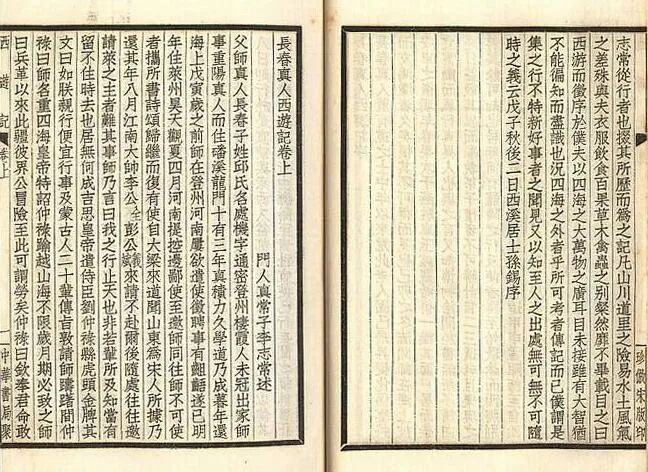 志常從行者也掇其所歷而爲之記凡山川道里之險易水土風氣
之差殊與夫衣服飲食百果草木禽蟲之別粲然靡不畢載目之曰
西游而徵序於僕夫以四海之大萬物之廣耳目未接雖有大智猶
不能徧知而盡識也況四海之外者乎所可考者傳記而已僕謂是
集之行不特新好事者之聞見又以知至人之出處無可無不可隨
時之義云戊子秋後二日西溪居士孫錫序
珍倣宋版印
長春真人西遊記卷上
門人真常子李志常述
父師真人長春子姓邱氏名處機字通密登州棲霞人未冠出家師
事重陽真人而住磻溪龍門十有三年真積力久學道乃成暮年還
海上戊寅歲之前師在登州河南屢欲遣使徵聘事有齟齬遂已明
年住萊州昊天觀夏四月河南提控邊鄙使至邀師同往師不可使
者攜所書詩頌歸繼而復有使自大梁來道聞山東爲宋人所據乃
還其年八月江南大帥李公全彭公義斌來請不赴爾後隨處往往邀
請萊之主者難其事師乃言曰我之行止天也非若輩所及知當有
留不住時去也居無何成吉思皇帝遣侍臣劉仲祿縣虎頭金牌其
文曰如朕親行便宜行事及蒙古人二十輩傳旨敦請師躊躇間仲
祿曰師名重四海皇帝特詔仲祿踰越山海不限歲月期必致之師
曰兵革以來此疆彼界公冒險至此可謂勞矣仲祿曰欽奉君命敢
西遊記
卷上
一
中華書局聚